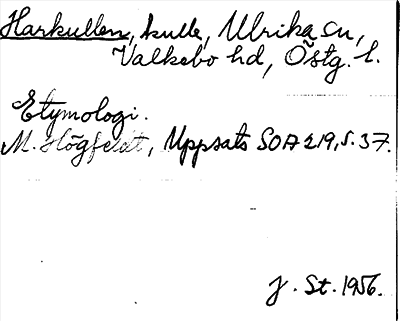 Harkullen, kulle, Ulrika sn,
Valkebo hd, Östg. l.
Etymologi.
M. Högfeldt, Uppsats SOA 219, s. 37.
J. St. 1956.